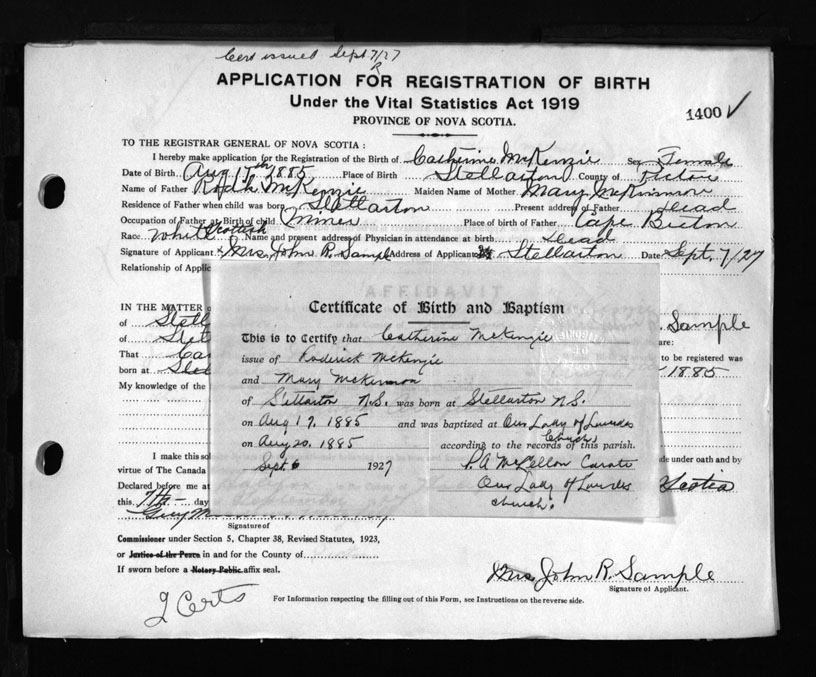 Cert issued Sept 7/27
R
APPLICATION FOR REGISTRATION OF BIRTH
Under the Vital Statistics Act 1919
PROVINCE OF NOVA SCOTIA.
1400 ✓
TO THE REGISTRAR GENERAL OF NOVA SCOTIA:
I hereby make application for the Registration of the Birth of Catherine McKenzie Sex Female
Date of Birth Aug 17th 1885 Place of Birth Stellarton County of Pictou
Name of Father McKenzie Maiden Name of Mother Mary McKinnon
Residence of Father when child was born Stellarton Present address of Father Dead
Occupation of Father at Birth of child Miner Place of birth of Father Cape Breton
Race White Scottish Name and present address of Physician in attendance at birth Dead
Signature of Applicant x Mrs. John R. Sample Address of Applicant Stellarton Date Sept. 7/27
Relationship of Applic
AFFIDAVIT
IN THE MATTER o
of Stell Sample
of Stel are:
That Ca to be registered was
born at Stel 1885
My knowledge of the
Certificate of Birth and Baptism
This is to Certify that Catherine McKenzie
issue of Roderick McKenzie
and Mary McKinnon
of Stellarton N.S. was born at Stellarton N.S.
on Aug 17. 1885 and was baptized at Our Lady of Lourdes Church
on Aug 20. 1885 according to the records of this parish.
Sept 6 1927 Curate
Our Lady of Lourdes
church.
I make this sol de under oath and by
virtue of The Canada
Declared before me at Scotia
this 7th day
Signature of
Commissioner under Section 5, Chapter 38, Revised Statutes, 1923,
or Justice of the Peace in and for the County of
If sworn before a Notary Public affix seal.
Mrs. John R. Sample
Signature of Applicant.
2 Certs
For Information respecting the filling out of this Form, see Instructions on the reverse side.